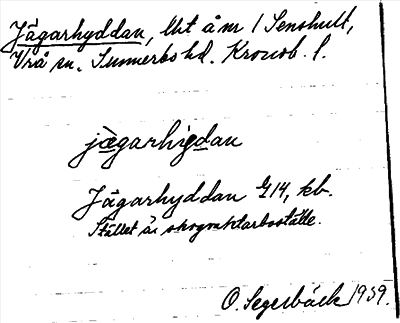 Jägarhyddan, lht å nr 1 Senshult,
Vrå sn. Sunnerbo hd. Kronob. l.
jägarhigdan
Jägarhyddan G14, kb.
Stället är skogvaktarboställe.
O. Segerbäck 1939.